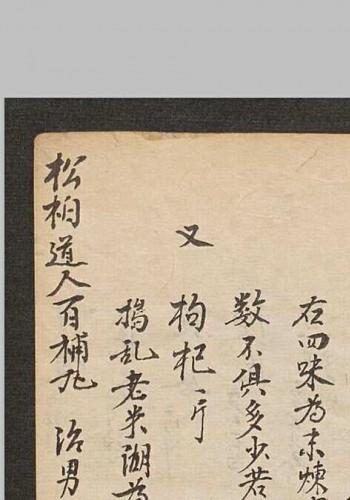 右四味為末煉
数不俱多少若
又
枸杞一斤
搗乱老米湖為
松栢道人百補丸 治男